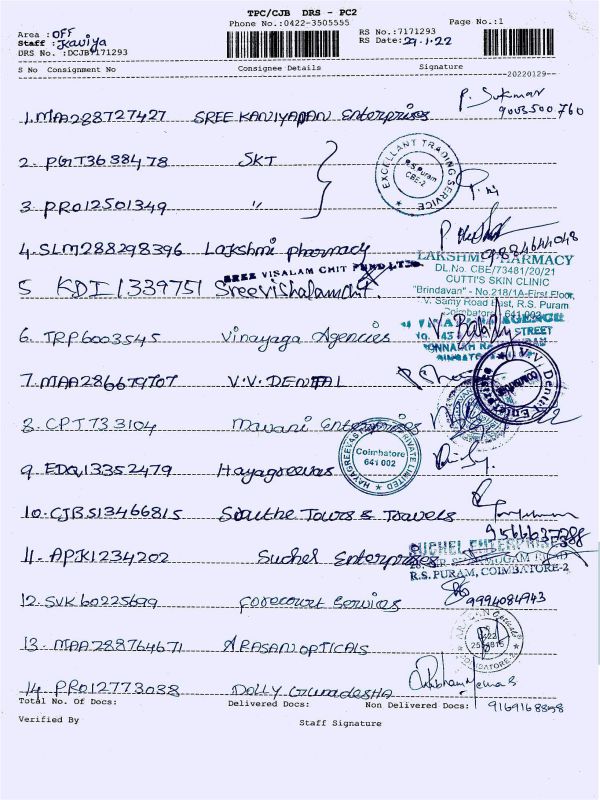 TPC/CJB DRS - PC2
Phone No.:0422-3505555
Page No.:1
Area : OFF
Staff : Kaviya
DRS No. :DCJB7171293
RS No.:7171293
RS Date: 29.1.22
S No Consignment No Consignee Details Signature
20220129
1. MAA288727427 SREE KANIYAPAN Enterprises P. Sukumar
9003500760
2. PGT3638478 SKT
EXCELLANT TRADING SERVICE
R.S.Puram
CBE-2
3. PRO12501349 "
4. SLM288298396 Lakshmi pharmacy 9884644048
LAKSHMI PHARMACY
DL.No. CBE/73481/20/21
CUTTI'S SKIN CLINIC
"Brindavan" - No.218/1A-First Floor,
V. Samy Road East, R.S. Puram
Coimbatore 641 002
SREE VISALAM CHIT FUND LTD.
5 KDI1339751 Sreevishalamchit.
6. TRP6003545 Vinayaga Agencies
STREET
7. MAA286679707 V.V. DENTAL
V.V. Dental
8. CPT733104 Mavani Enterprises
9. EDQ13352479 Hayagreevas
HAYAGREEVAS PRIVATE LIMITED
Coimbatore
641 002
10. CJBS13466815 Southe Tours & Travels
9566637288
11. APK1234202 Suchel Enterprises
SUCHEL ENTERPRISES
R.S. PURAM, COIMBATORE-2
12. SVK60225699 Forecourt Services
9994084943
13. MAA288764671 ARASAN OPTICALS
COIMBATORE-2
14. PRO12773038 DOLLY Gunadesha
9169168898
Total No. Of Docs: Delivered Docs: Non Delivered Docs:
Verified By Staff Signature